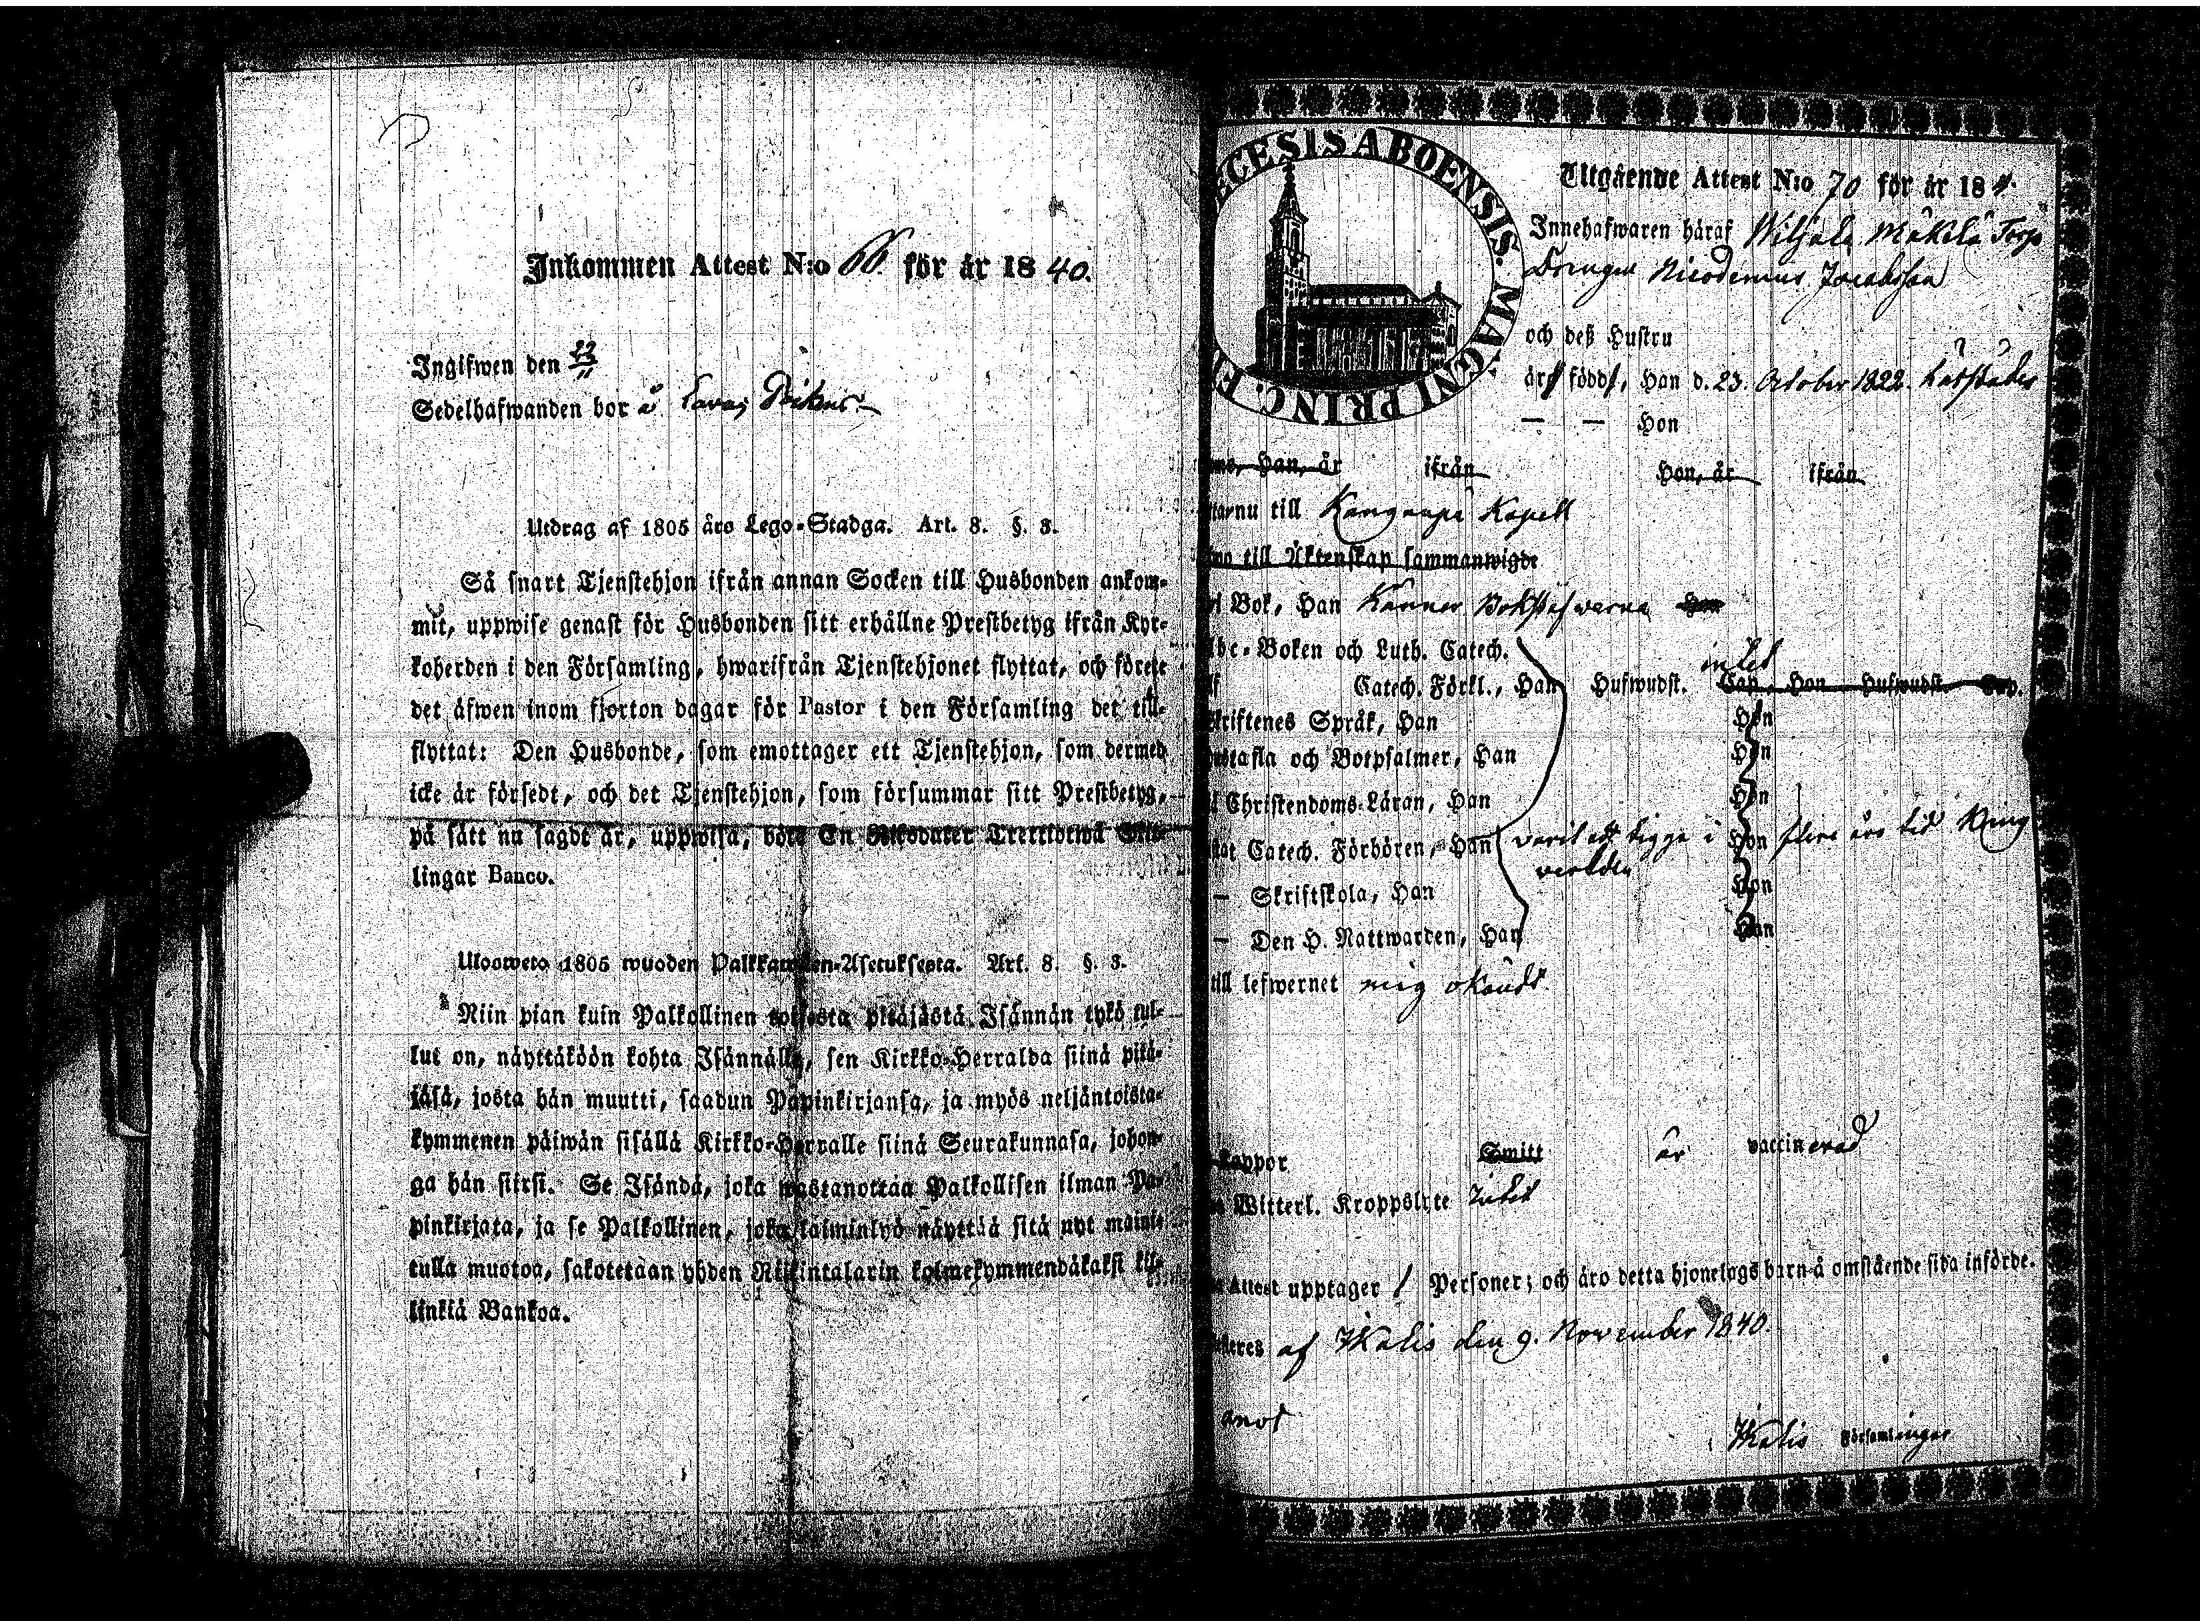 Inkommen Attest N:o 66 för år 1840.
Ingifwen den 22/11
Sedelhafwanden bor å
Utdrag af 1805 års Lego-Stadga. Art. 8. §. 3.
Så snart Tjenstehjon ifrån annan Socken till Husbonden ankom-
mit, uppwise genast för Husbonden sitt erhållne Prestbetyg ifrån Kyr-
koherden i den Församling, hwarifrån Tjenstehjonet flyttat, och förete
det äfwen inom fjorton dagar för Pastor i den Församling det till-
flyttat: Den Husbonde, som emottager ett Tjenstehjon, som dermed
icke är försedt, och det Tjenstehjon, som försummar sitt Prestbetyg,
på sätt nu sagdt är, uppwisa, böte En Riksdaler Trettiotwå Skil-
lingar Banco.
Ulosweto 1805 wuoden Palkkawäen-Asetuksesta. Art. 8. §. 3.
Niin pian kuin Palkollinen toisesta pitäjästä Isännän tykö tul-
lut on, näyttäköön kohta Isännälle, sen Kirkko-Herralda siinä pitä-
jäsä, josta hän muutti, saadun Papinkirjansa, ja myös neljäntoista-
kymmenen päiwän sisällä Kirkko-Herralle siinä Seurakunnasa, johon-
ga hän siirsi. Se Isändä, joka wastanottaa Palkollisen ilman Pa-
pinkirjata, ja se Palkollinen, joka laiminlyö näyttää sitä nyt maini-
tulla muotoa, sakotetaan yhden Riikintalarin kolmekymmendäkaksi kil-
linkiä Bankoa.
ECESIS ABOENSIS. MAGNI PRINC. F
Utgående Attest N:o 70 för år 18
Innehafwaren häraf Wiljala Mäkelä Torp
Drengen Nicodemus Jacobsson
och deß Hustru
är född, Han d. 23. October 1822.
— — Hon
Han, år ifrån Hon, år ifrån
nu till Kangaspä Kapell
till Äktenskap sammanwigde
Bok, Han Känner Bokstäfwerna Hon
Abc-Boken och Luth. Catech.
intet
Catech. Förkl., Han Hufwudst. Cap. Hon Hufwudst. Cap.
Skriftenes Språk, Han Hon
Hustafla och Botpsalmer, Han Hon
Christendoms-Läran, Han Hon
Catech. Förhören, Han varit att tigga i Hon flere års tid kring
verlden
— Skriftskola, Han Hon
— Den H. Nattwarden, Han Hon
till lefwernet mig okändt.
Koppor Smitt är vaccinerad
Witterl. Kroppslyte Intet
Attest upptager 1 Personer; och äro detta hjonelags barn å omstående sida införde.
af Ikalis den 9. November 1840.
Ikalis Församlingar